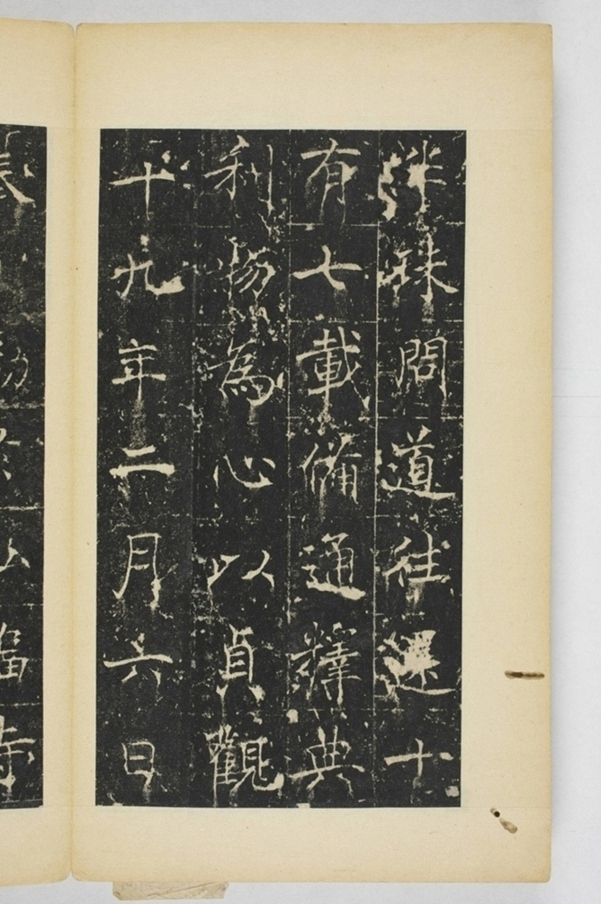 半珠問道往還十
有七載備通釋典
利物為心以貞觀
十九年二月六日